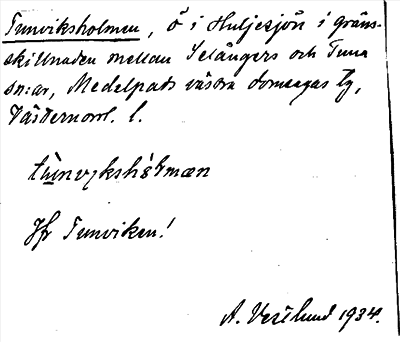 Tunviksholmen, ö i Huljesjön i gräns-
skillnaden mellan Selångers och Tuna
sn:ar, Medelpads västra domsagas tg,
Västernorrl. l.
Jfr Tunviken!
A. Vestlund 1934.